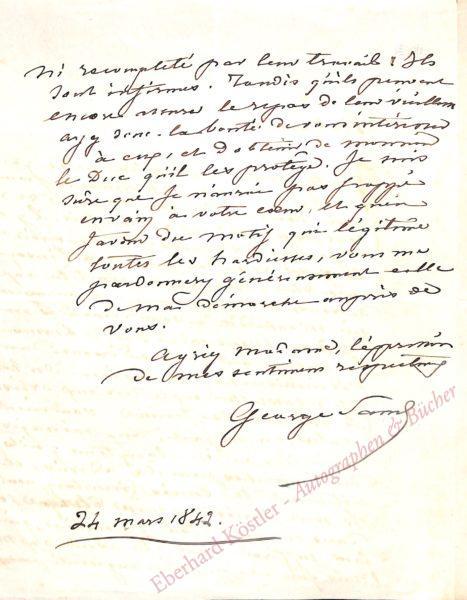 ni recompleté par leur travail : Ils
sont infirmes. Tandis qu'ils peuvent
encore assurer le repos de leur vieillesse
ayez donc la bonté de vous intéresser
à eux, et d'obtenir de monsieur
le Duc qu'il les protège. Je suis
sûre que je n'aurai pas frappé
en vain à votre cœur, et qu'en
faveur du motif qui légitime
toutes les hardiesses, vous me
pardonnerez généreusement celle
de ma démarche auprès de
vous.
Agréez madame, l'expression
de mes sentimens respectueux
George Sand
24 mars 1842.
Eberhard Köstler - Autographen & Bücher